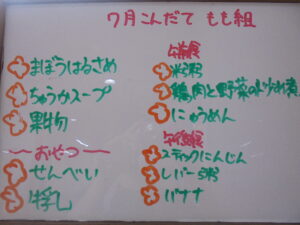 7月こんだて もも組
まぼうはるさめ
ちゅうかスープ
果物
〜おやつ〜
せんべい
牛乳
午前食
米粥
鶏肉と野菜の炒め煮
にゅうめん
午後食
スティックにんじん
レバー粥
バナナ